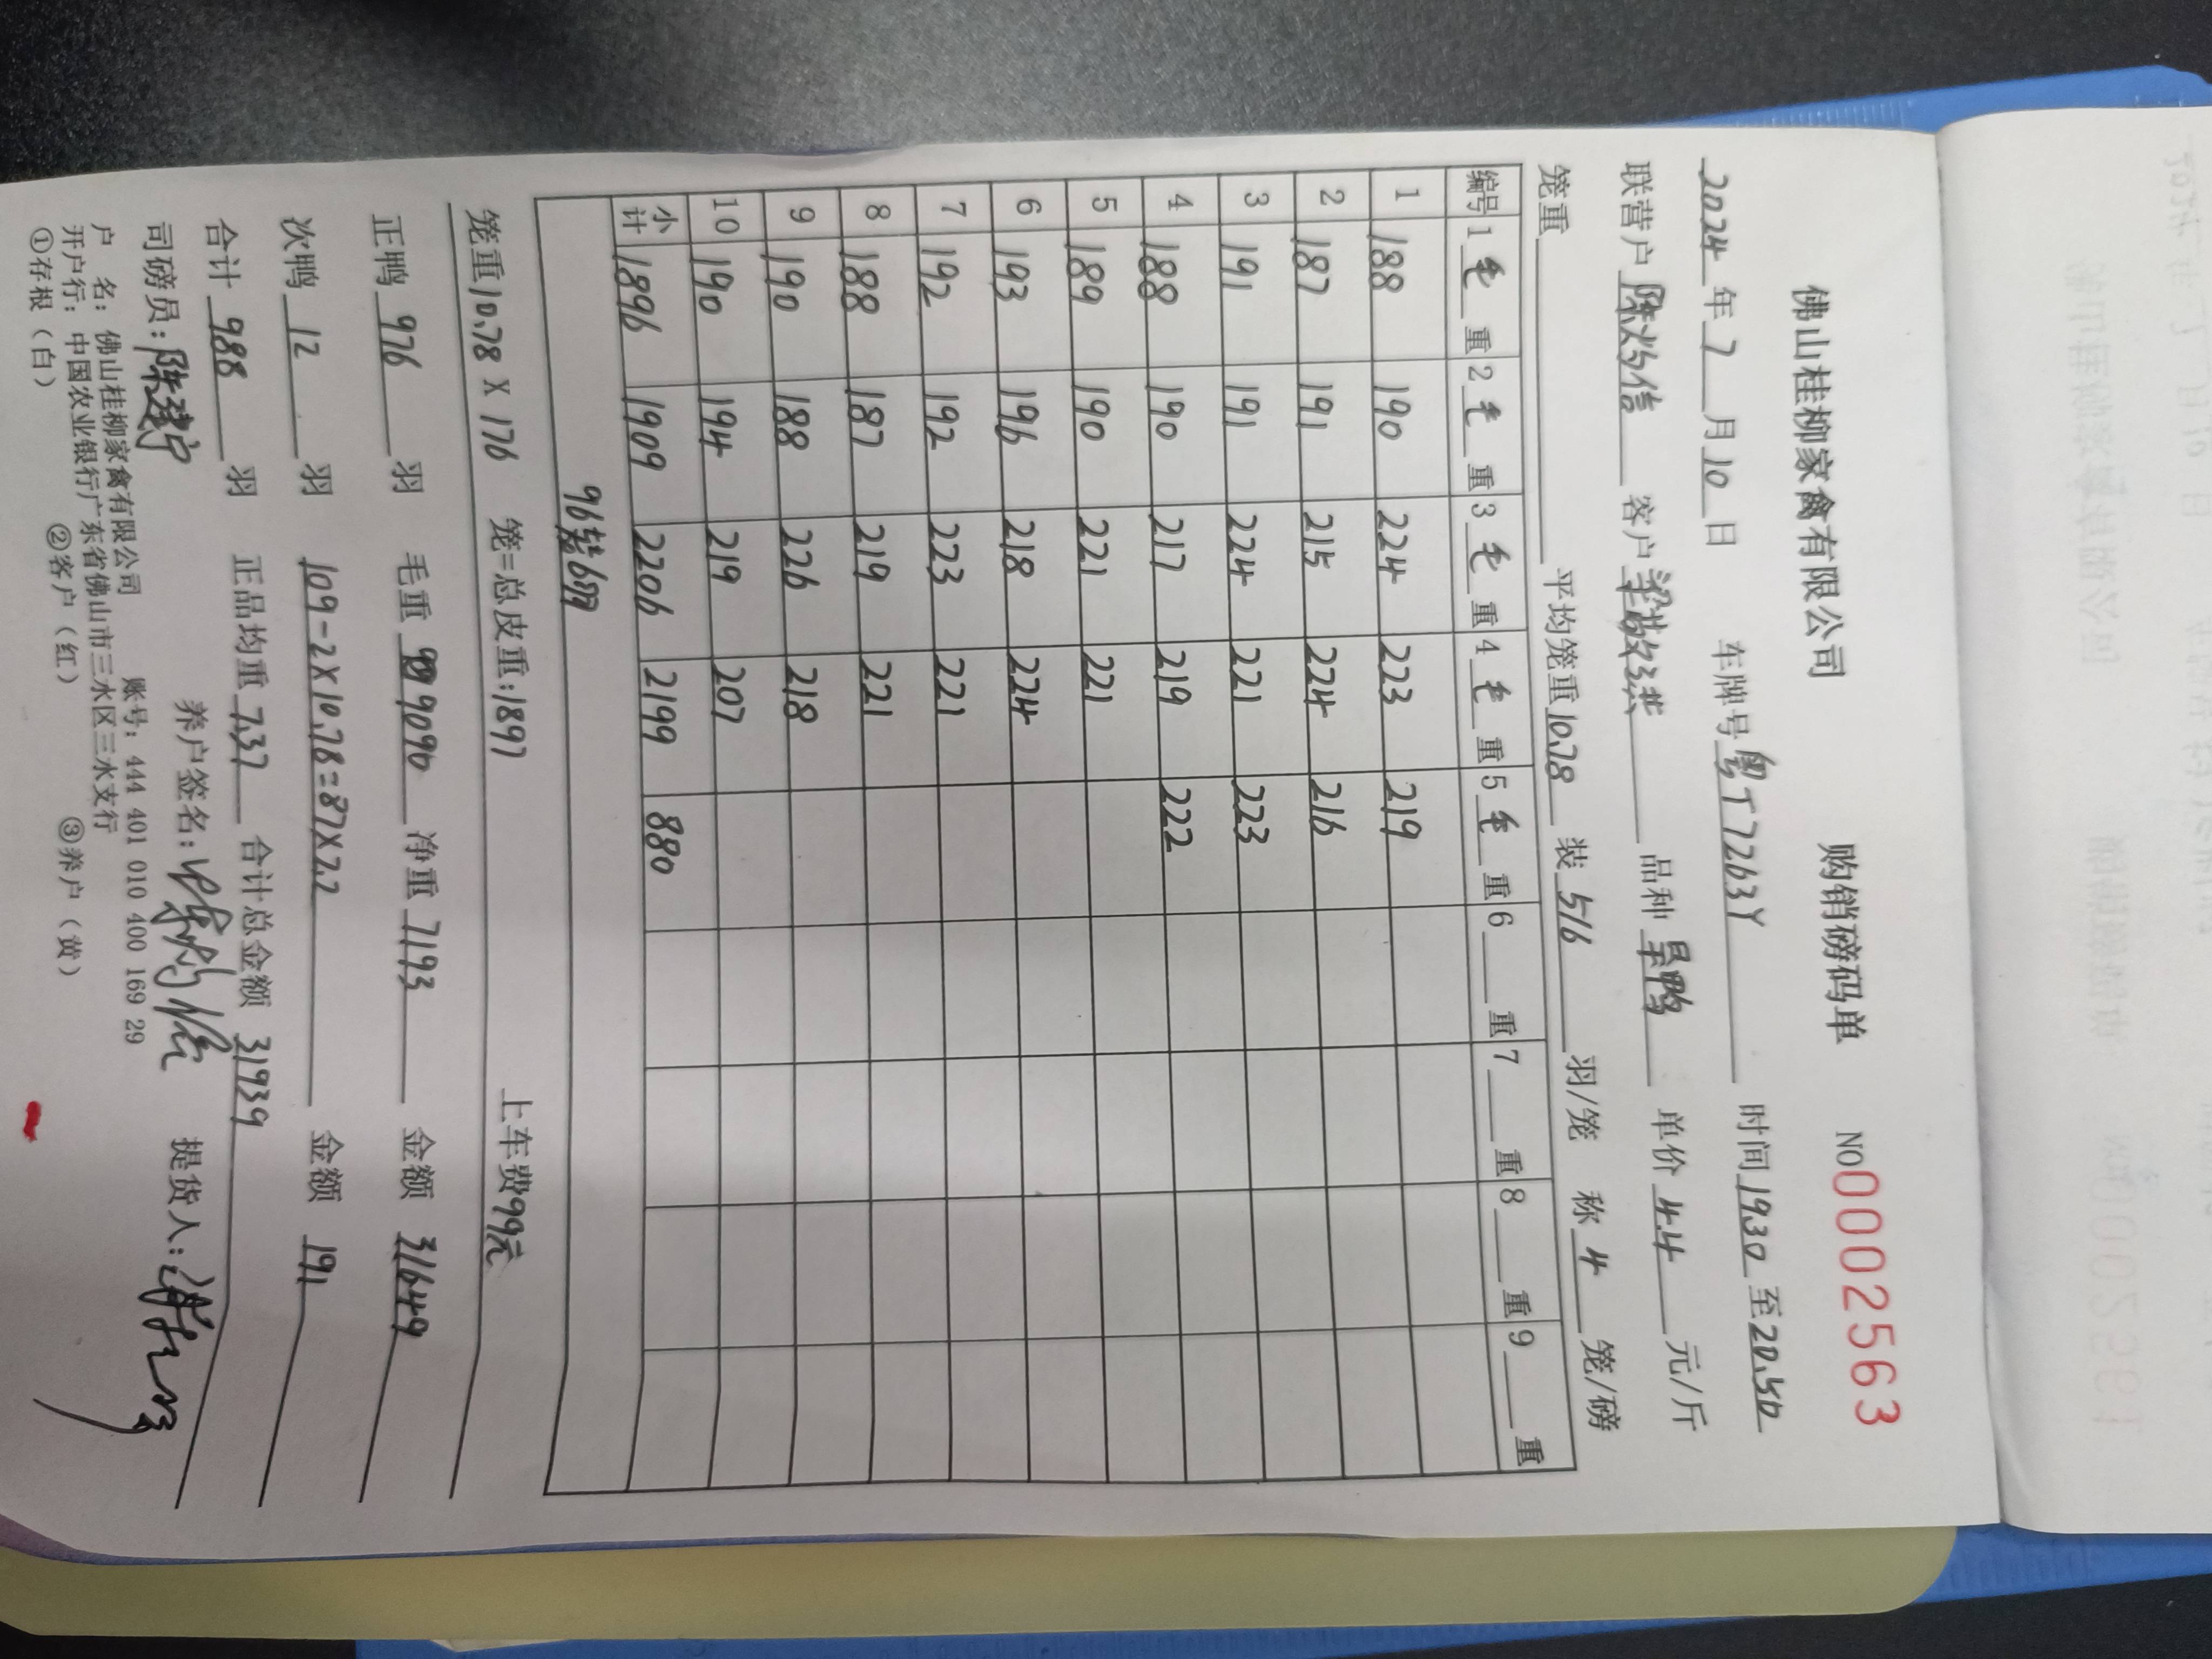 佛山桂柳家禽有限公司 购销磅码单 NO 0002563
2024年7月10日 车牌号 粤T7263Y 时间 19.30 至 20.50
联营户 陈灼信 客户 品种 单价 4.4 元/斤
笼重 平均笼重 10.78 装 5/6 羽/笼 称 4 笼/磅
编号 1 毛 重 2 毛 重 3 毛 重 4 毛 重 5 毛 重 6 重 7 重 8 重 9 重
1 188 190 224 223 219
2 187 191 215 224 216
3 191 191 224 221 223
4 188 190 217 219 222
5 189 190 221 221
6 193 196 218 224
7 192 192 223 221
8 188 187 219 221
9 190 188 226 218
10 190 194 219 207
小计 1896 1909 2206 2199 880
96
笼重 10.78 X 176 笼=总皮重:1897 上车费99元
正鸭 976 羽 毛重 9090 净重 7193 金额 31649
次鸭 12 羽 109-2X10.78=87X2.2 金额 191
合计 988 羽 正品均重 7.37 合计总金额 31939
司磅员: 陈建宁 养户签名: 陈灼信 提货人:
户 名: 佛山桂柳家禽有限公司 账号: 444 401 010 400 169 29
开户行: 中国农业银行广东省佛山市三水区三水支行
①存根（白） ②客户（红） ③养户（黄）